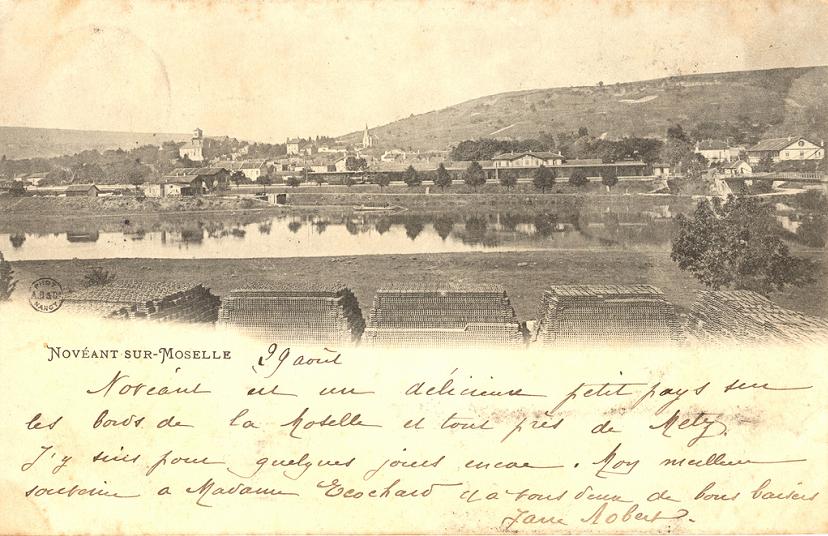 PHOT
A.B&Co
NANCY
NOVÉANT-SUR-MOSELLE 29 août
Novéant est un délicieux petit pays sur
les bords de la Moselle et tout près de Metz.
J'y suis pour quelques jours encore. Mon meilleur
souvenir à Madame Ecochard et à tous deux de bons baisers
Robert.